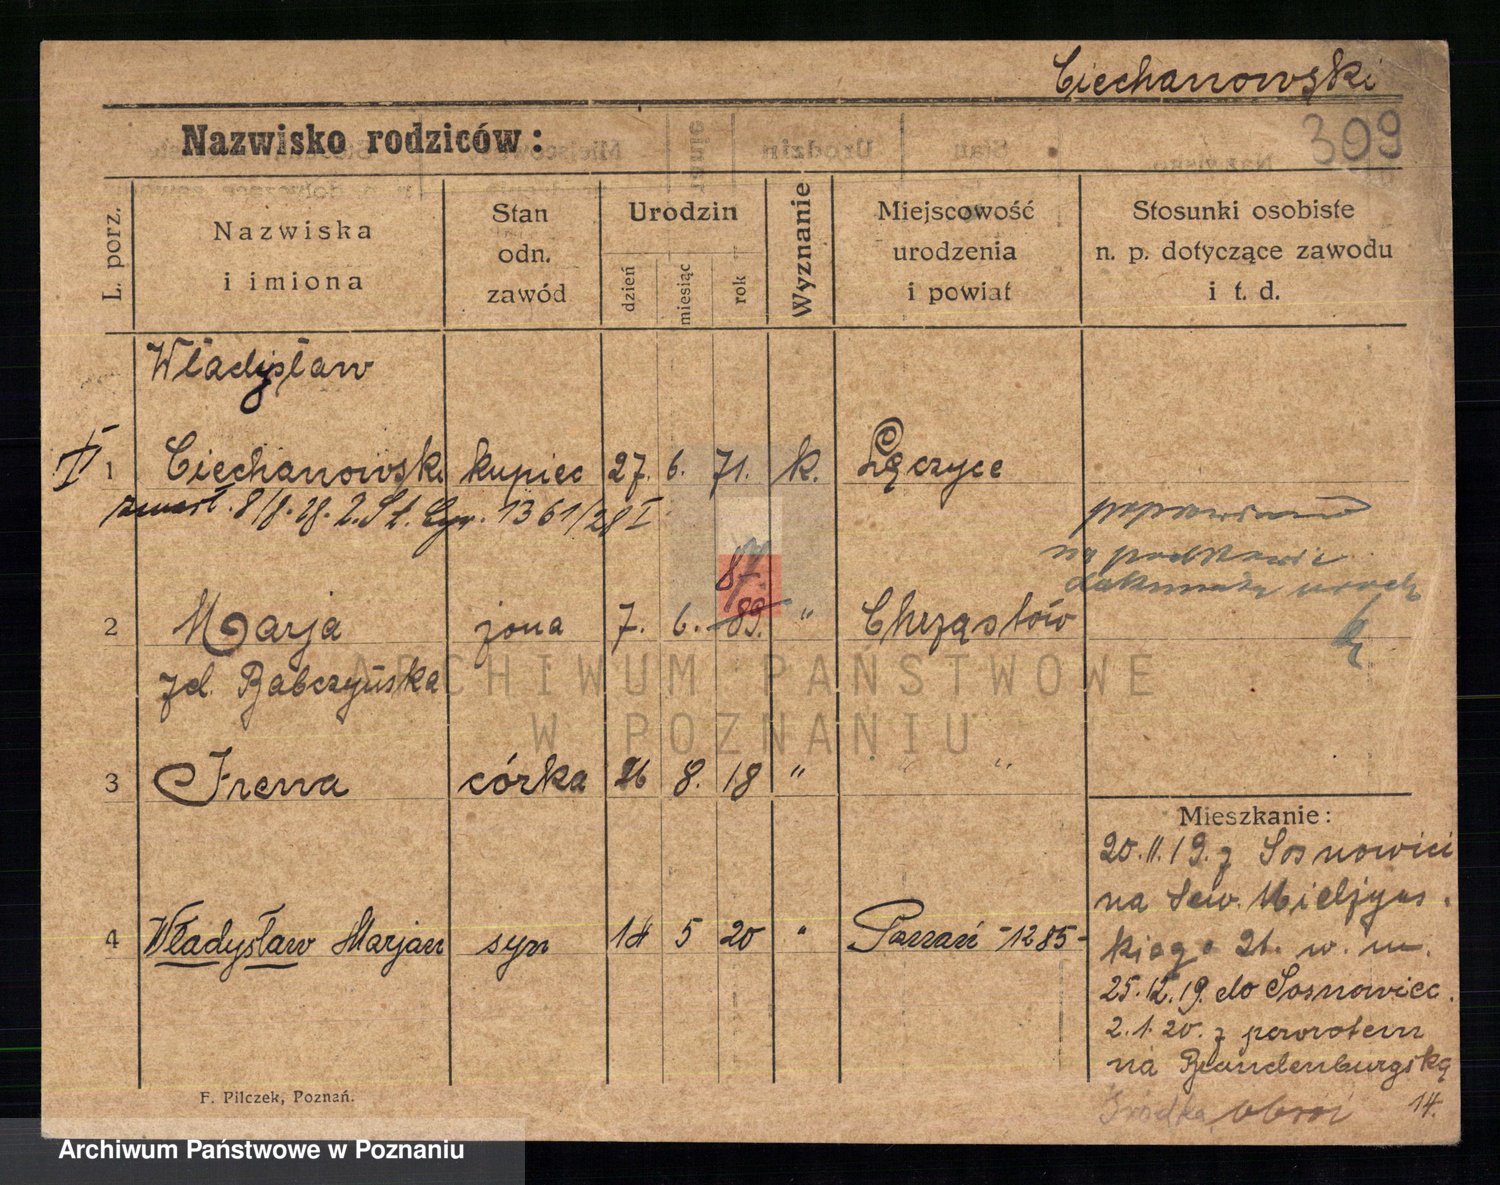 Ciechanowski
Nazwisko rodziców:
309
L. porz.
Nazwiska
i imiona
Stan
odn.
zawód
Urodzin
dzień
miesiąc
rok
Wyznanie
Miejscowość
urodzenia
i powiat
Stosunki osobiste
n. p. dotyczące zawodu
i t. d.
Władysław
1 Ciechanowski kupiec 27. 6. 71. k. Łęczyce
zmarł. 8/8. 28. 2. St. Cyw. 1361/28 I
poprawiono
na podstawie
dokumentu urodz
87.
2 Marja żona 7. 6. 89. " Chrząstów
zd. Babczyńska
3 Irena córka 26 8. 18 " " "
4 Władysław Marjan syn 14 5 20 " Poznań -1285-
Mieszkanie:
20.11.19. z Sosnowici
na Sew. Mielżyńs.
kiego 21. w. m.
25.12.19. do Sosnowicc.
2.1.20. z powrotem
na Brandenburgską
14.
Środka
F. Pilczek, Poznań.
ARCHIWUM PAŃSTWOWE
W POZNANIU
Archiwum Państwowe w Poznaniu